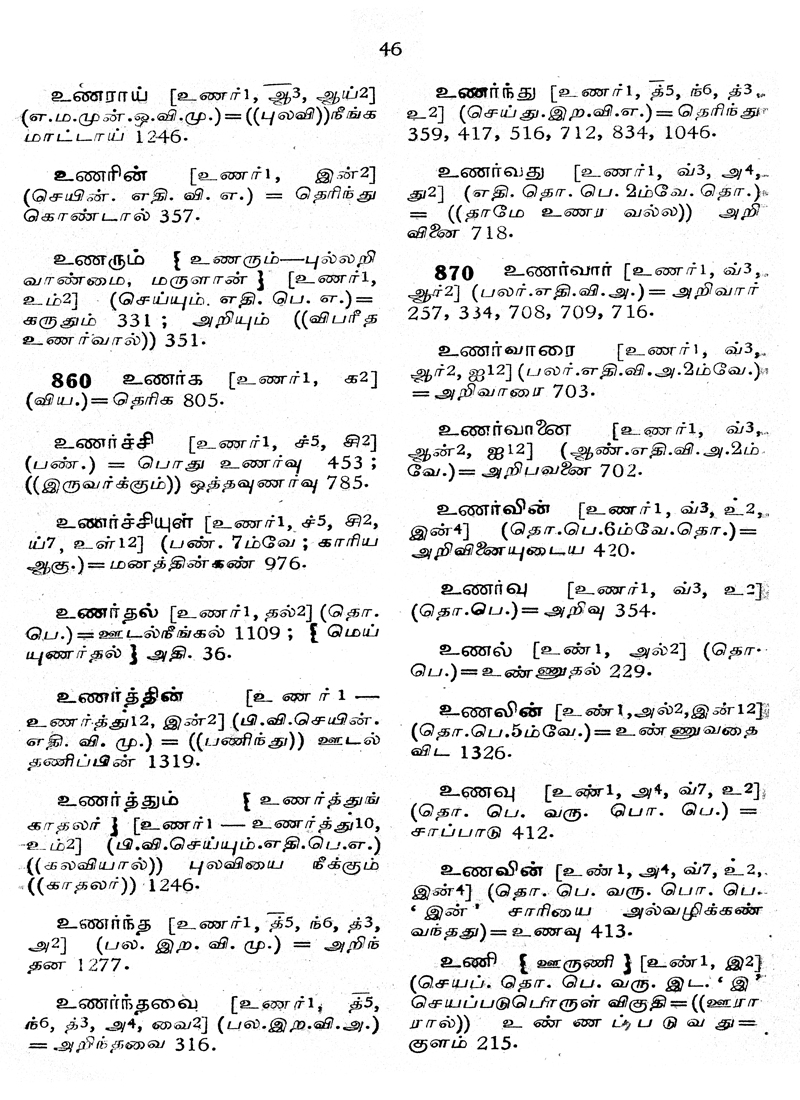 46
உணராய் [உணர்1, ஆ3, ஆய்2]
(எ.ம.முன்.ஒ.வி.மு.)=((புலவி))நீங்க
மாட்டாய் 1246.
உணரின் [உணர்1, இன்2]
(செயின். எதி. வி. எ.) = தெரிந்து
கொண்டால் 357.
உணரும் { உணரும்—புல்லறி
வாண்மை, மருளான் } [உணர்1,
உம்2] (செய்யும். எதி. பெ. எ.)=
கருதும் 331 ; அறியும் ((விபரீத
உணர்வால்)) 351.
860 உணர்க [உணர்1, க2]
(விய.)=தெரிக 805.
உணர்ச்சி [உணர்1, ச்5, சி2]
(பண்.) = பொது உணர்வு 453 ;
((இருவர்க்கும்)) ஒத்தவுணர்வு 785.
உணர்ச்சியுள் [உணர்1, ச்5, சி2,
ய்7, உள்12] (பண். 7ம்வே ; காரிய
ஆகு.)=மனத்தின்கண் 976.
உணர்தல் [உணர்1, தல்2] (தொ.
பெ.)=ஊடல்நீங்கல் 1109 ; { மெய்
யுணர்தல் } அதி. 36.
உணர்த்தின் [உணர்1 —
உணர்த்து12, இன்2] (பி.வி.செயின்.
எதி. வி. மு.) = ((பணிந்து)) ஊடல்
தணிப்பின் 1319.
உணர்த்தும் { உணர்த்துங்
காதலர் } [உணர்1 — உணர்த்து10,
உம்2] (பி.வி.செய்யும்.எதி.பெ.எ.)
((கலவியால்)) புலவியை நீக்கும்
((காதலர்)) 1246.
உணர்ந்த [உணர்1, த்5, ந்6, த்3,
அ2] (பல. இற. வி. மு.) = அறிந்
தன 1277.
உணர்ந்தவை [உணர்1, த்5,
ந்6, த்3, அ4, வை2] (பல.இற.வி.அ.)
= அறிந்தவை 316.
உணர்ந்து [உணர்1, த்5, ந்6, த்3,
உ2] (செய்து.இற.வி.எ.)=தெரிந்து
359, 417, 516, 712, 834, 1046.
உணர்வது [உணர்1, வ்3, அ4,
து2] (எதி. தொ. பெ. 2ம்வே. தொ.)
= ((தாமே உணர வல்ல)) அறி
வினை 718.
870 உணர்வார் [உணர்1, வ்3,
ஆர்2] (பலர்.எதி.வி.அ.)=அறிவார்
257, 334, 708, 709, 716.
உணர்வாரை [உணர்1, வ்3,
ஆர்2, ஐ12] (பலர்.எதி.வி.அ.2ம்வே.)
=அறிவாரை 703.
உணர்வானை [உணர்1, வ்3,
ஆன்2, ஐ12] (ஆண்.எதி.வி.அ.2ம்
வே.)=அறிபவனை 702.
உணர்வின் [உணர்1, வ்3, உ2,
இன்4] (தொ.பெ.6ம்வே.தொ.)=
அறிவினையுடைய 420.
உணர்வு [உணர்1, வ்3, உ2]
(தொ.பெ.)=அறிவு 354.
உணல் [உண்1, அல்2] (தொ.
பெ.)=உண்ணுதல் 229.
உணலின் [உண்1,அல்2,இன்12]
(தொ.பெ.5ம்வே.)=உண்ணுவதை
விட 1326.
உணவு [உண்1, அ4, வ்7, உ2]
(தொ. பெ. வரு. பொ. பெ.) =
சாப்பாடு 412.
உணவின் [உண்1, அ4, வ்7, உ2,
இன்4] (தொ. பெ. வரு. பொ. பெ.
‘ இன் ’ சாரியை அல்வழிக்கண்
வந்தது)=உணவு 413.
உணி { ஊருணி } [உண்1, இ2]
(செயப். தொ. பெ. வரு. இட. ‘ இ ’
செயப்படுபொருள் விகுதி=((ஊரா
ரால்)) உண்ணப்படுவது=
குளம் 215.